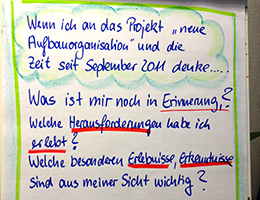 Wenn ich an das Projekt „neue
Aufbauorganisation" und die
Zeit seit September 2011 denke.....
Was ist mir noch in Erinnerung,?
Welche Herausforderungen habe ich
erlebt?
Welche besonderen Erlebnisse, Erkenntnisse
sind aus meiner Sicht wichtig?